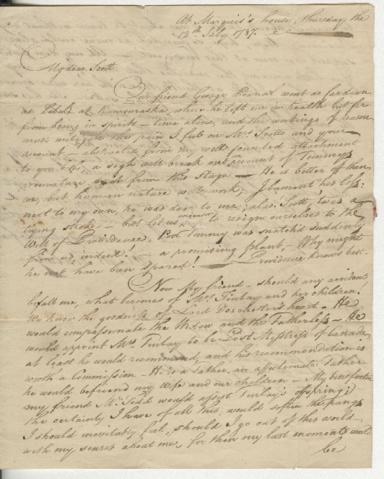 At Marquis's house, Thursday the
12th July 1787.
My dear Scott.
Our friend George Pownal went as far down
as Tidals at Kamouraska, where he left me in health but far
from being in spirits — time alone, and the workings of reason
must the pain I felt on Mrs Scotts and your
account, from my well founded attachment
to you — a sigh will break out frequent if Tommy's
exit from this Stage — He is better off than
we, but human nature is weak, I lament his loss
not to my own, he was dear to me, alas, Scott, 'twas a
trying stroke — but let us to resign ourselves to the
Will of Providence. Poor Tommy was snatched suddenly
from us indeed — a promising plant — Why might
he not have been spared! Providence knows best.
Now My friend — should any accident
befall me, what becomes of Mrs Finlay and her children,
We know the goodness of Lord Dorchesters heart — He
would compassionate the Widow and the Fatherless — He
would appoint Mrs Finlay to be Post Mistress of Canada
at least he would recommend, and his recommendation is
worth a Commission — He is a father, an affectionate Father
he would befriend my Wife and our children — My
my friend Mr Todd would assist Finlay's offspring;
the certainty I have of all this, would soften the pangs
I should inevitably feel, should I go out of this world
with my senses about me, for then my last moments must
be